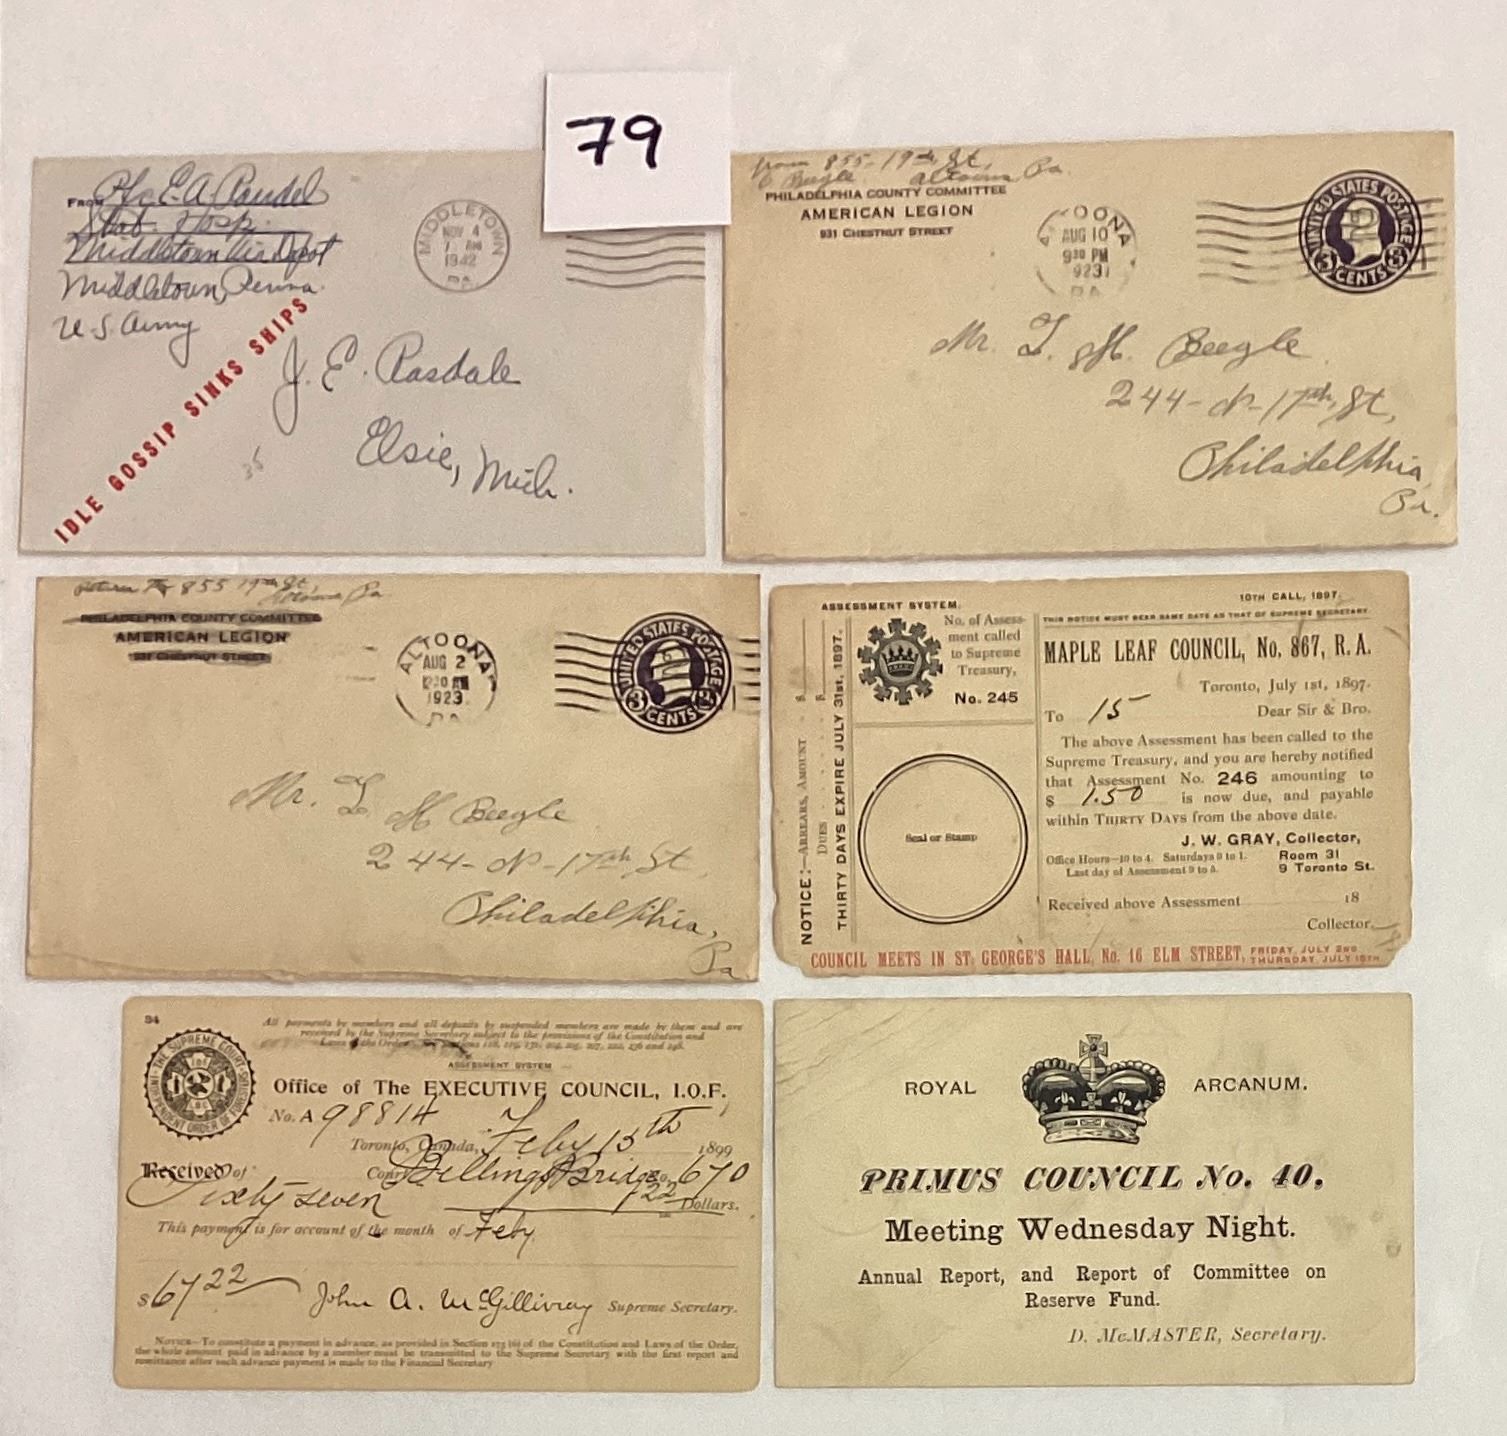 79
FROM Pfc E. A. Randel
Stat. Hosp.
Middletown Air Depot
Middletown, Penna.
U.S. Army
MIDDLETOWN
NOV 4
7 AM
1942
PA.
IDLE GOSSIP SINKS SHIPS
J. E. Rasdale
Elsie, Mich.
35
from 855-19th St,
Beegle Altoona Pa.
PHILADELPHIA COUNTY COMMITTEE
AMERICAN LEGION
931 CHESTNUT STREET
OONA
AUG 10
9 30 PM
1923
PA.
UNITED STATES POSTAGE
3 CENTS 3
Mr. L. H. Beegle
244-N-17th St,
Philadelphia,
Pa.
Return To 855 19th St,
Altoona Pa
PHILADELPHIA COUNTY COMMITTEE
AMERICAN LEGION
931 CHESTNUT STREET
ALTOONA
AUG 2
1923
PA.
UNITED STATES POSTAGE
3 CENTS 3
Mr. L. H Beegle
244-N-17th St,
Philadelphia,
Pa
ASSESSMENT SYSTEM.
No. of Assess-
ment called
to Supreme
Treasury,
No. 245
NOTICE:—ARREARS, AMOUNT $
DUES $
THIRTY DAYS EXPIRE JULY 31st, 1897.
Seal or Stamp
10TH CALL, 1897.
THIS NOTICE MUST BEAR SAME DATE AS THAT OF SUPREME SECRETARY.
MAPLE LEAF COUNCIL, No. 867, R. A.
Toronto, July 1st, 1897.
To 15 Dear Sir & Bro.
The above Assessment has been called to the
Supreme Treasury, and you are hereby notified
that Assessment No. 246 amounting to
$ 1.50 is now due, and payable
within THIRTY DAYS from the above date.
J. W. GRAY, Collector,
Office Hours—10 to 4. Saturdays 9 to 1. Room 31
Last day of Assessment 9 to 5. 9 Toronto St.
Received above Assessment 18
Collector.
COUNCIL MEETS IN ST. GEORGE'S HALL, No. 16 ELM STREET, FRIDAY, JULY 2ND
THURSDAY, JULY 15TH
34
THE SUPREME COURT
INDEPENDENT ORDER OF FORESTERS
All payments by members and all deposits by suspended members are made by them and are
received by the Supreme Secretary subject to the provisions of the Constitution and
Laws of the Order.
ASSESSMENT SYSTEM
Office of The EXECUTIVE COUNCIL, I.O.F.
No. A 98814
Toronto, Canada, Feby 15th 1899
Received of Court Billings Bridge No. 670
Sixty seven 22 Dollars.
100
This payment is for account of the month of Feby
$67 22
John A. McGillivray Supreme Secretary.
NOTICE—To constitute a payment in advance, as provided in Section 173 (6) of the Constitution and Laws of the Order,
the whole amount paid in advance by a member must be transmitted to the Supreme Secretary with the first report and
remittance after such advance payment is made to the Financial Secretary
ROYAL ARCANUM.
PRIMUS COUNCIL No. 40.
Meeting Wednesday Night.
Annual Report, and Report of Committee on
Reserve Fund.
D. McMASTER, Secretary.